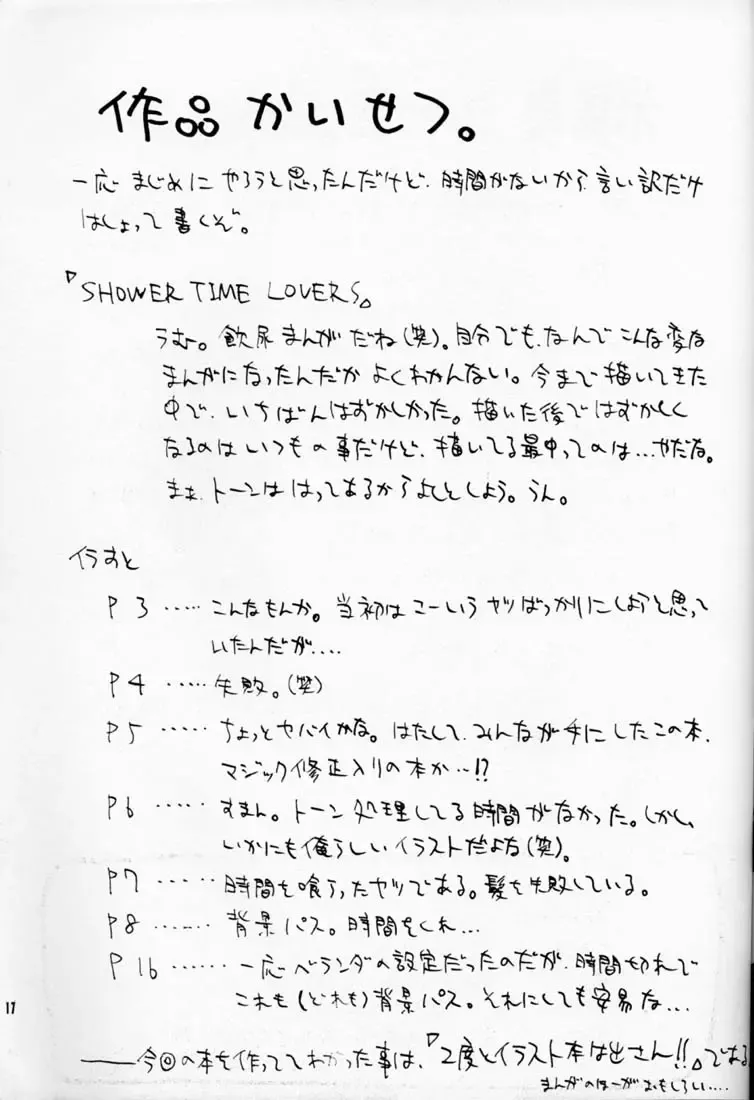 作品かいせつ。
一応まじめにやろうと思ったんだけど、時間がないから言い訳だけ
はしょって書くぞ。
『SHOWER TIME LOVERS』
うむ。飲尿まんがだね(笑)。自分でも、なんでこんな変な
まんがになったんだかよくわかんない。今まで描いてきた
中で、いちばんはずかしかった。描いた後ではずかしく
なるのはいつもの事だけど、描いてる最中ってのは…やだな。
まぁ、トーンははってあるからよしとしよう。うん。
イラすと
P3 ……こんなもんか。当初はこーいうヤツばっかりにしようと思って
いたんだが‥‥
P4 ……失敗。(笑)
P5 ……ちょっとヤバイかな。はたして、みんなが手にしたこの本、
マジック修正入りの本か…!?
P6 ……すまん。トーン処理してる時間がなかった。しかし、
いかにも俺らしいイラストだよな(笑)。
P7 ……時間を喰ったヤツである。髪を失敗している。
P8 ……背景パス。時間をくれ…
P16 ……一応ベランダの設定だったのだが、時間切れで
これも(どれも)背景パス。それにしても安易な…
――今回の本を作っててわかった事は、『2度とイラスト本は出さん!!』である
まんがのほーがおもしろい‥‥
17